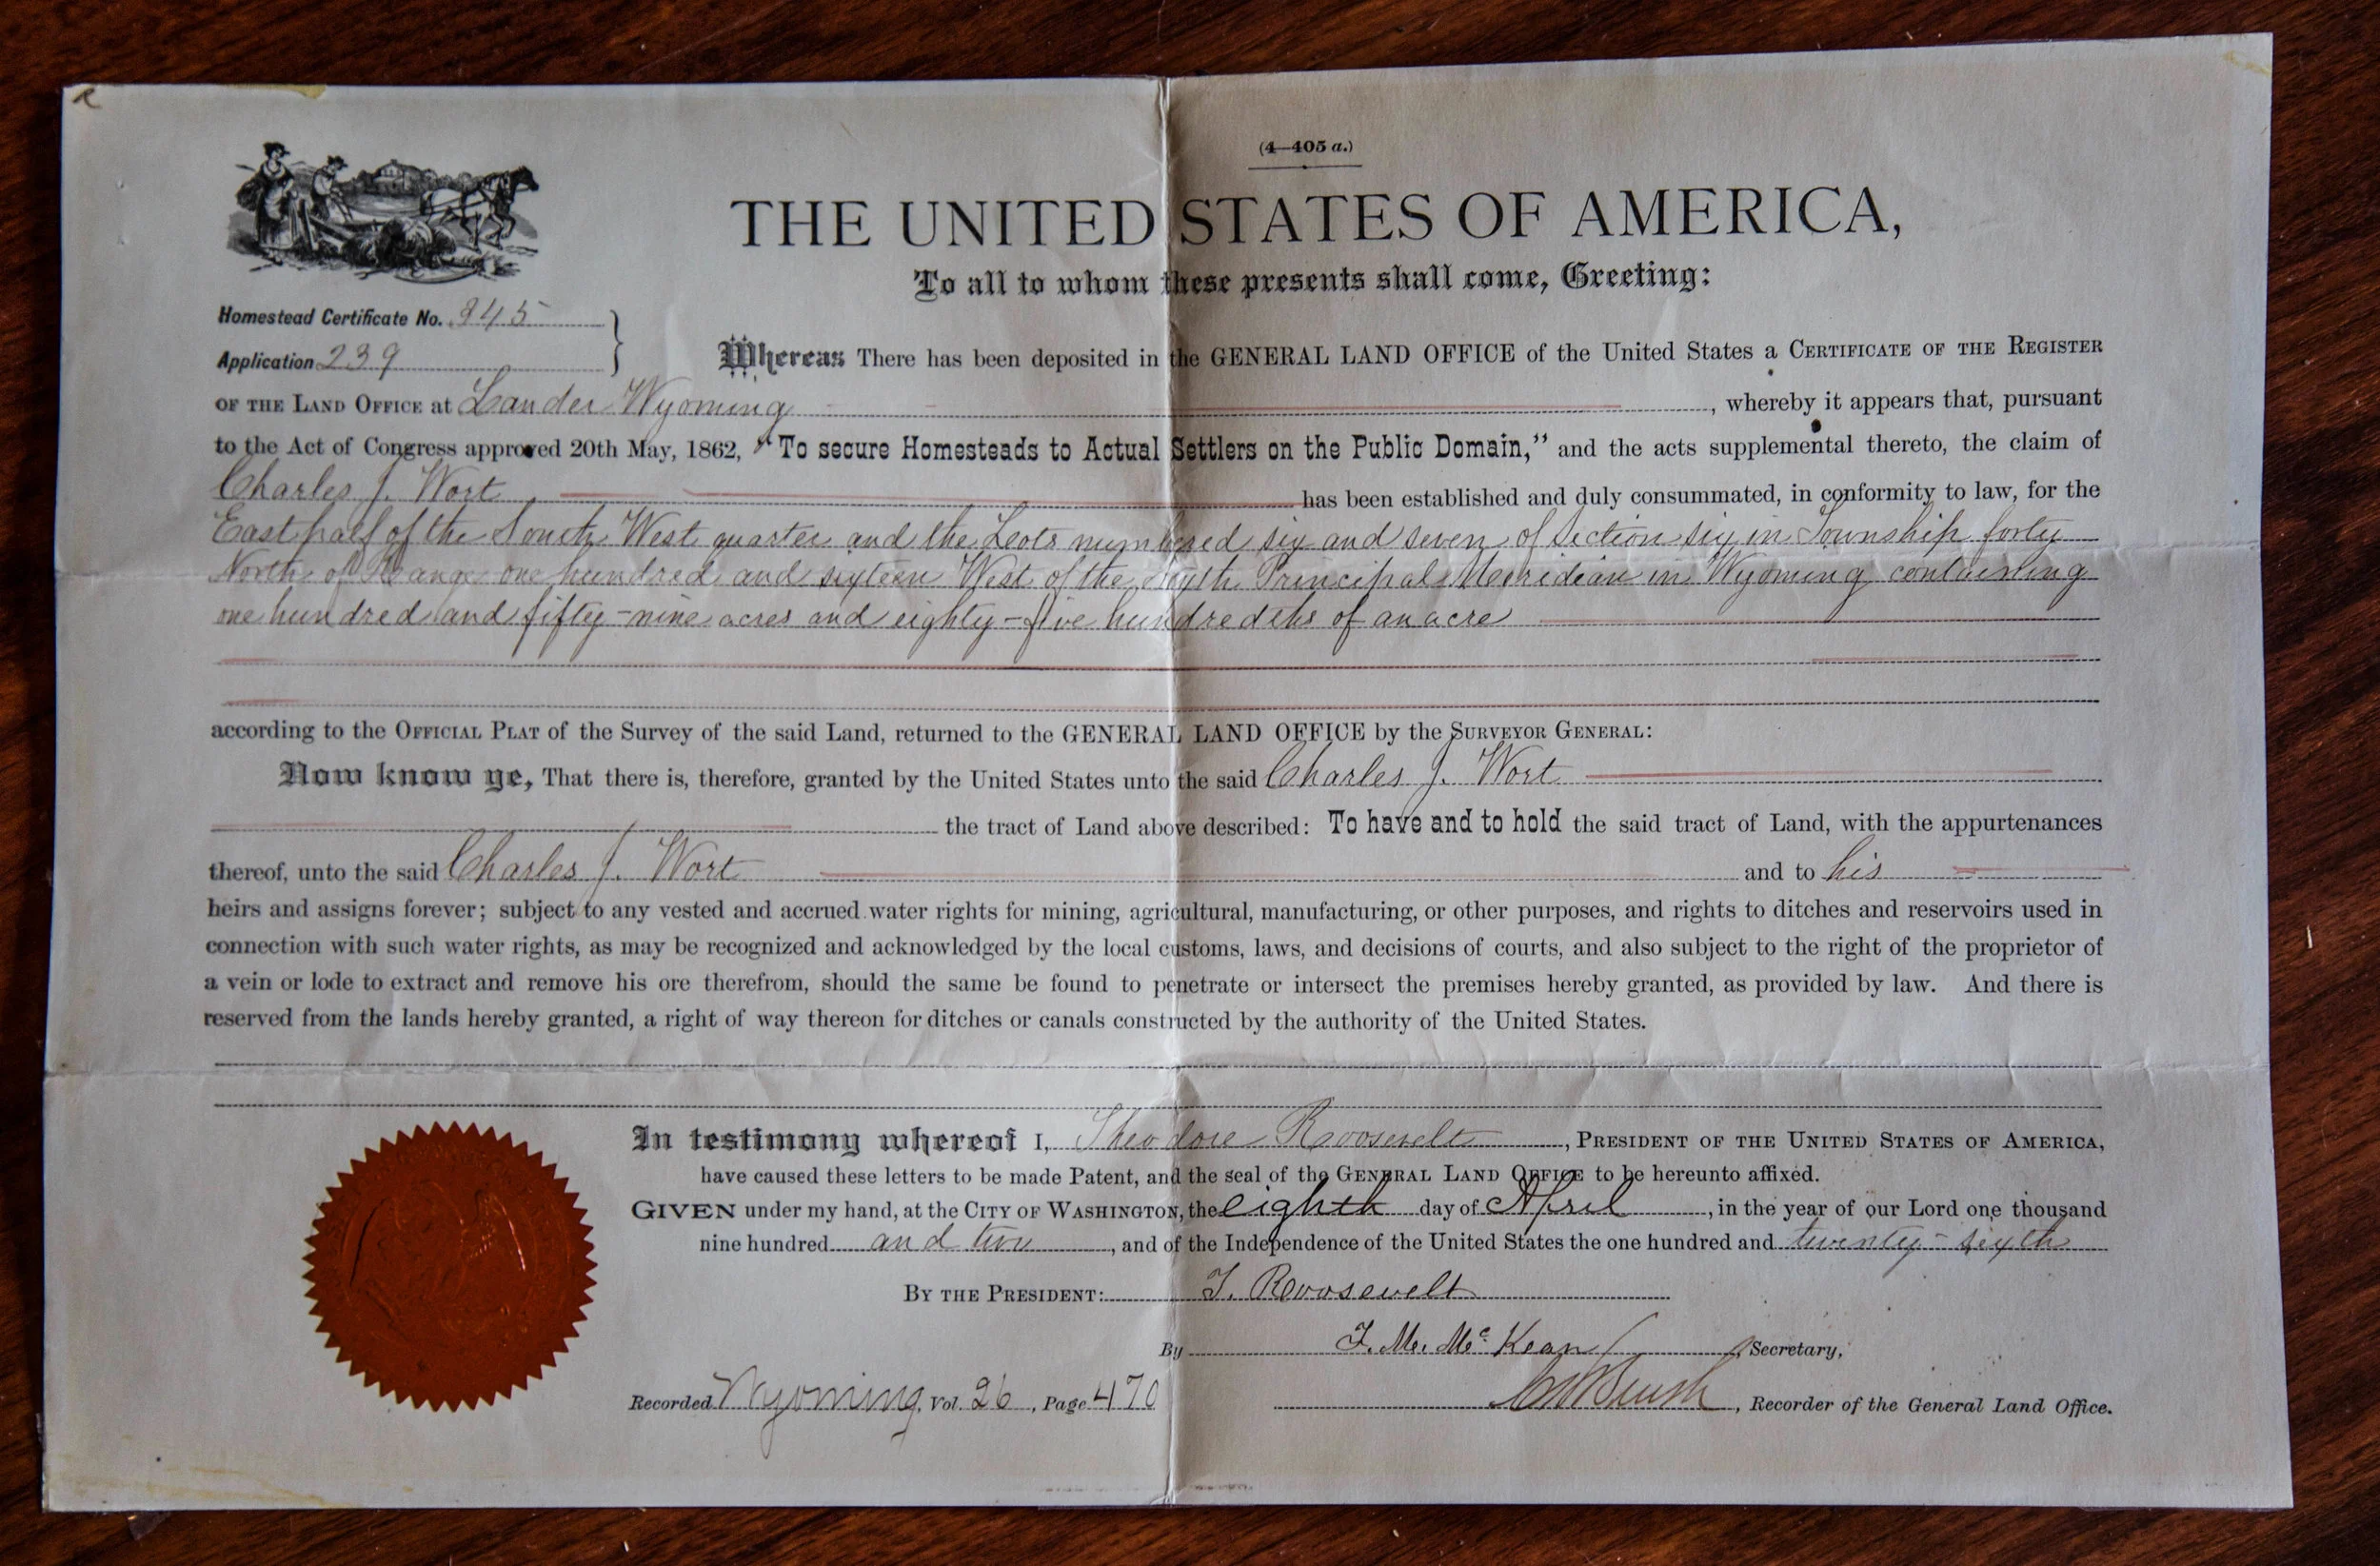 (4—405 a.)
THE UNITED STATES OF AMERICA,
To all to whom these presents shall come, Greeting:
Homestead Certificate No. 345
Application 239
Whereas There has been deposited in the GENERAL LAND OFFICE of the United States a CERTIFICATE OF THE REGISTER
OF THE LAND OFFICE at Lander Wyoming, whereby it appears that, pursuant
to the Act of Congress approved 20th May, 1862, "To secure Homesteads to Actual Settlers on the Public Domain," and the acts supplemental thereto, the claim of
Charles J. Wort has been established and duly consummated, in conformity to law, for the
East half of the South West quarter and the Lots numbered six and seven of Section six in Township forty
North of Range one hundred and sixteen West of the Sixth Principal Meridian in Wyoming containing
one hundred and fifty-nine acres and eighty-five hundredths of an acre
according to the OFFICIAL PLAT of the Survey of the said Land, returned to the GENERAL LAND OFFICE by the SURVEYOR GENERAL:
Now know ye, That there is, therefore, granted by the United States unto the said Charles J. Wort
the tract of Land above described: To have and to hold the said tract of Land, with the appurtenances
thereof, unto the said Charles J. Wort and to his
heirs and assigns forever; subject to any vested and accrued water rights for mining, agricultural, manufacturing, or other purposes, and rights to ditches and reservoirs used in
connection with such water rights, as may be recognized and acknowledged by the local customs, laws, and decisions of courts, and also subject to the right of the proprietor of
a vein or lode to extract and remove his ore therefrom, should the same be found to penetrate or intersect the premises hereby granted, as provided by law. And there is
reserved from the lands hereby granted, a right of way thereon for ditches or canals constructed by the authority of the United States.
In testimony whereof I, Theodore Roosevelt, PRESIDENT OF THE UNITED STATES OF AMERICA,
have caused these letters to be made Patent, and the seal of the GENERAL LAND OFFICE to be hereunto affixed.
GIVEN under my hand, at the CITY OF WASHINGTON, the eighth day of April, in the year of our Lord one thousand
nine hundred and two, and of the Independence of the United States the one hundred and twenty-sixth
BY THE PRESIDENT: T. Roosevelt
By F. M. McKean, Secretary,
Recorded Wyoming, Vol. 26, Page 470
, Recorder of the General Land Office.